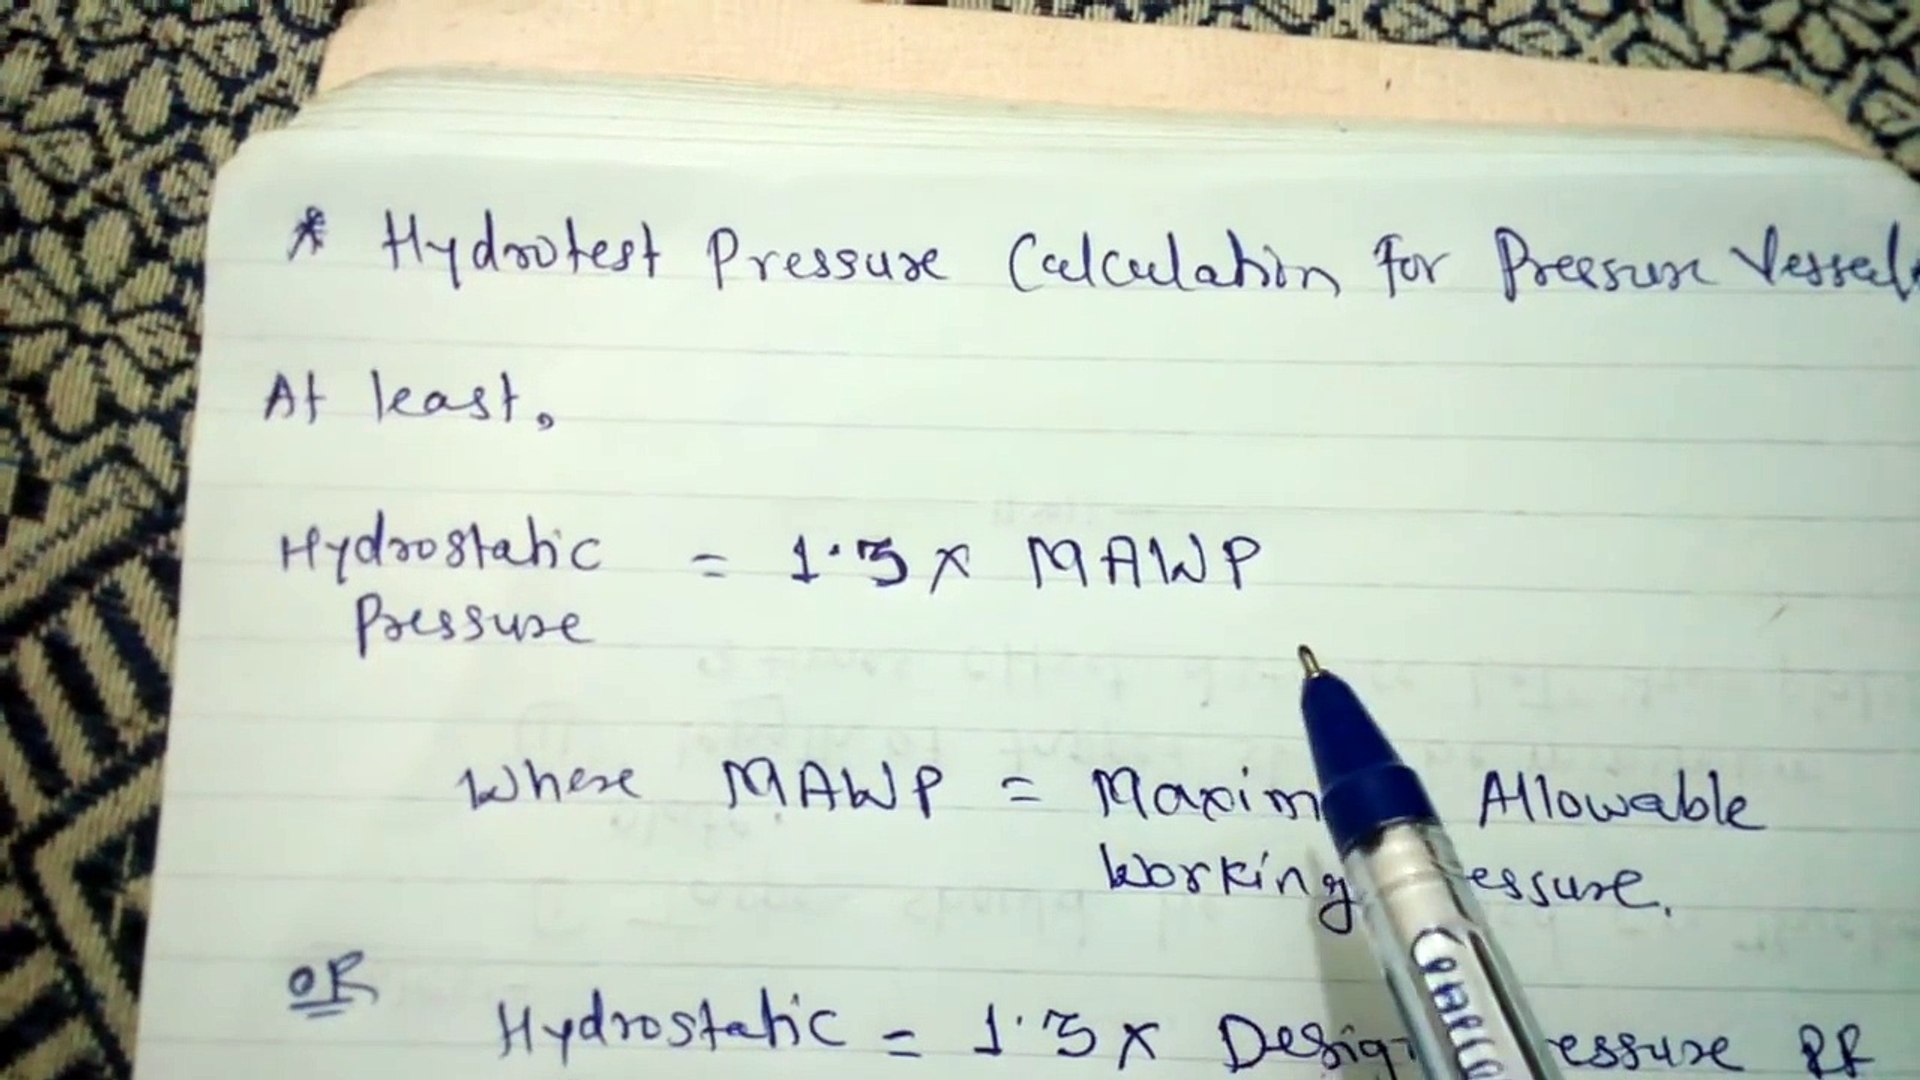 * Hydrotest Pressure Calculation for Pressure Vessel
At least,
Hydrostatic = 1.3 x MAWP
Pressure
Where MAWP = Maxim Allowable
Working essure.
OR
Hydrostatic = 1.3 x Desig essure